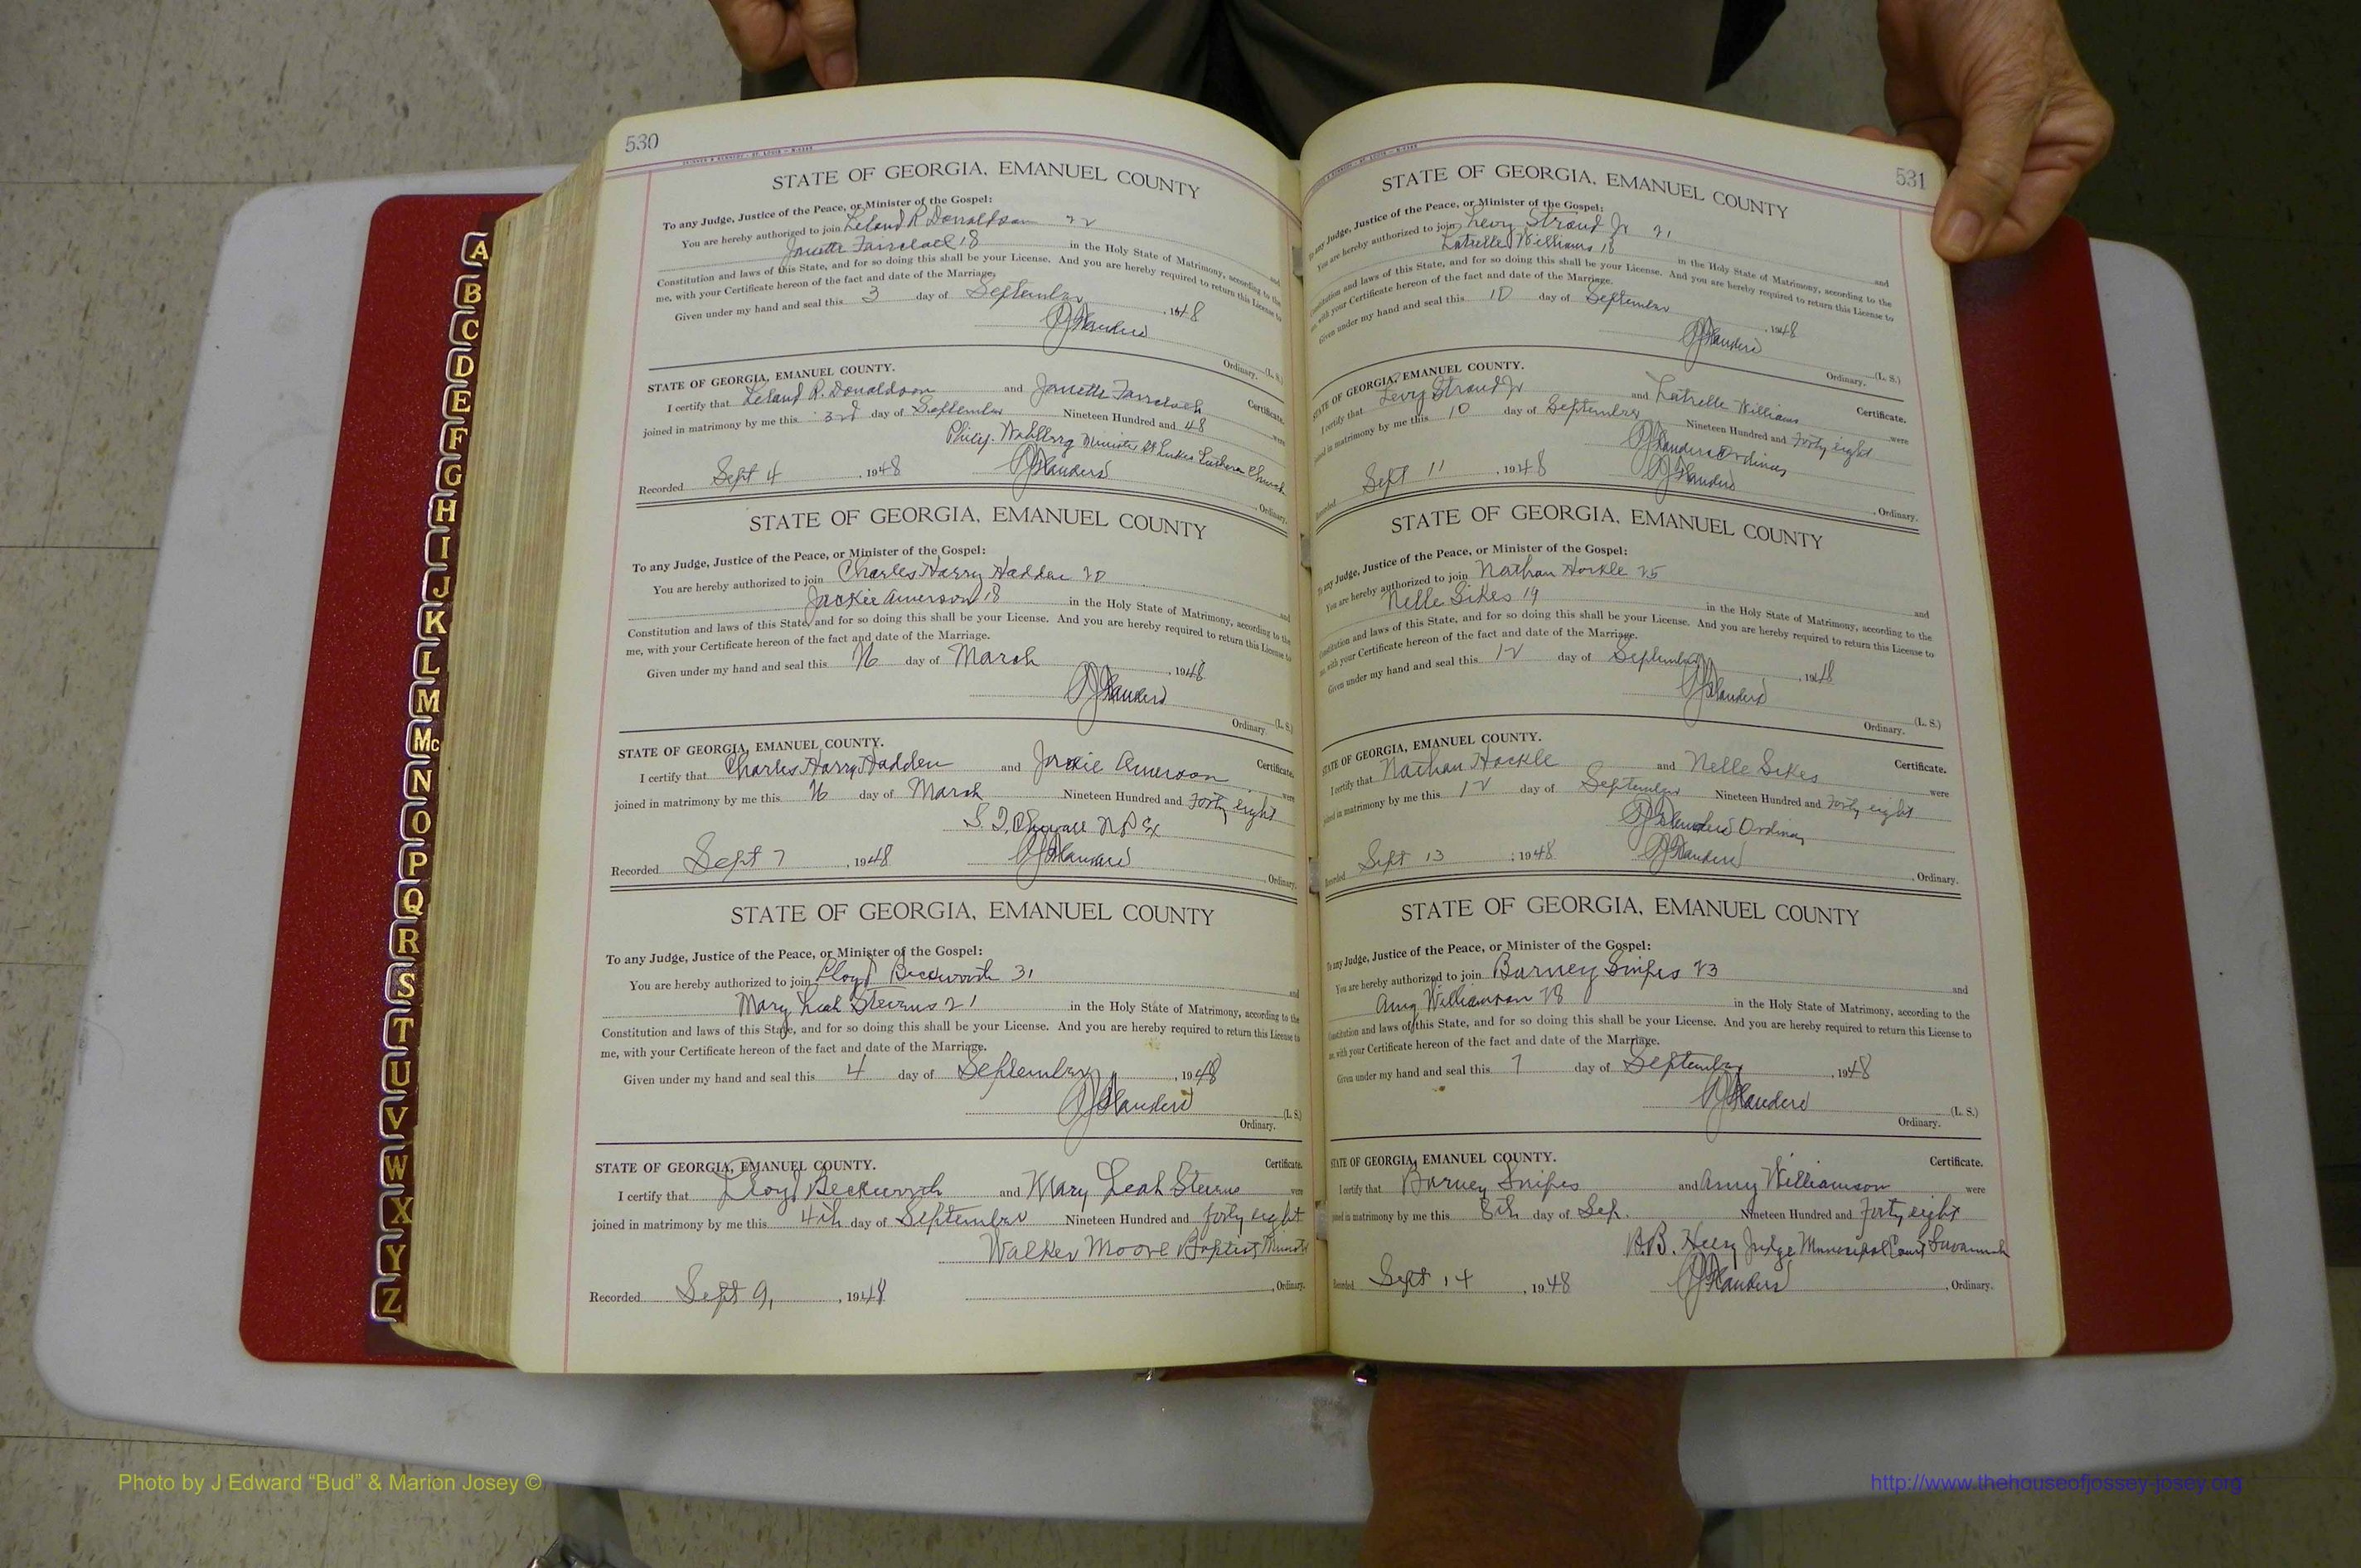 530
STATE OF GEORGIA, EMANUEL COUNTY
To any Judge, Justice of the Peace, or Minister of the Gospel:
You are hereby authorized to join Leland R. Donaldson 22 and
18 in the Holy State of Matrimony, according to the
Constitution and laws of this State, and for so doing this shall be your License. And you are hereby required to return this License to
me, with your Certificate hereon of the fact and date of the Marriage.
Given under my hand and seal this 3 day of September, 1948
(L. S.)
Ordinary.
STATE OF GEORGIA, EMANUEL COUNTY. Certificate.
I certify that Leland R. Donaldson and were
joined in matrimony by me this 3rd day of September Nineteen Hundred and 48
Minister St Lukes Lutheran Church
Recorded Sept 4, 1948, Ordinary.
STATE OF GEORGIA, EMANUEL COUNTY
To any Judge, Justice of the Peace, or Minister of the Gospel:
You are hereby authorized to join Charles Harry Hadden 20 and
Jackie Amerson 18 in the Holy State of Matrimony, according to the
Constitution and laws of this State, and for so doing this shall be your License. And you are hereby required to return this License to
me, with your Certificate hereon of the fact and date of the Marriage.
Given under my hand and seal this day of March, 1948
(L. S.)
Ordinary.
STATE OF GEORGIA, EMANUEL COUNTY. Certificate.
I certify that Charles Harry Hadden and Jackie Amerson were
joined in matrimony by me this day of March Nineteen Hundred and Forty eight
Recorded Sept 7, 1948, Ordinary.
STATE OF GEORGIA, EMANUEL COUNTY
To any Judge, Justice of the Peace, or Minister of the Gospel:
You are hereby authorized to join Lloyd Beckworth 31 and
Mary Leah Stevens 21 in the Holy State of Matrimony, according to the
Constitution and laws of this State, and for so doing this shall be your License. And you are hereby required to return this License to
me, with your Certificate hereon of the fact and date of the Marriage.
Given under my hand and seal this 4 day of September, 1948
(L. S.)
Ordinary.
STATE OF GEORGIA, EMANUEL COUNTY. Certificate.
I certify that Lloyd Beckworth and Mary Leah Stevens were
joined in matrimony by me this 4th day of September Nineteen Hundred and forty eight
Walker Moore Baptist Minister
Recorded Sept 9, 1948, Ordinary.
531
STATE OF GEORGIA, EMANUEL COUNTY
To any Judge, Justice of the Peace, or Minister of the Gospel:
You are hereby authorized to join Levy Jr 21 and
Latrelle Williams 18 in the Holy State of Matrimony, according to the
Constitution and laws of this State, and for so doing this shall be your License. And you are hereby required to return this License to
me, with your Certificate hereon of the fact and date of the Marriage.
Given under my hand and seal this 10 day of September, 1948
(L. S.)
Ordinary.
STATE OF GEORGIA, EMANUEL COUNTY. Certificate.
I certify that Levy Jr and Latrelle Williams were
joined in matrimony by me this 10 day of September Nineteen Hundred and Forty eight
Ordinary
Recorded Sept 11, 1948, Ordinary.
STATE OF GEORGIA, EMANUEL COUNTY
To any Judge, Justice of the Peace, or Minister of the Gospel:
You are hereby authorized to join Nathan 25 and
Nelle Sikes 19 in the Holy State of Matrimony, according to the
Constitution and laws of this State, and for so doing this shall be your License. And you are hereby required to return this License to
me, with your Certificate hereon of the fact and date of the Marriage.
Given under my hand and seal this 12 day of September, 1948
(L. S.)
Ordinary.
STATE OF GEORGIA, EMANUEL COUNTY. Certificate.
I certify that Nathan and Nelle Sikes were
joined in matrimony by me this 12 day of September Nineteen Hundred and Forty eight
Ordinary
Recorded Sept 13, 1948, Ordinary.
STATE OF GEORGIA, EMANUEL COUNTY
To any Judge, Justice of the Peace, or Minister of the Gospel:
You are hereby authorized to join Barney Snipes 23 and
Amy Williamson 28 in the Holy State of Matrimony, according to the
Constitution and laws of this State, and for so doing this shall be your License. And you are hereby required to return this License to
me, with your Certificate hereon of the fact and date of the Marriage.
Given under my hand and seal this 7 day of September, 1948
(L. S.)
Ordinary.
STATE OF GEORGIA, EMANUEL COUNTY. Certificate.
I certify that Barney Snipes and Amy Williamson were
joined in matrimony by me this 8th day of Sep. Nineteen Hundred and Forty eight
Judge Municipal Court Savannah
Recorded Sept 14, 1948, Ordinary.
A
B
C
D
E
F
G
H
I
J
K
L
M
Mc
N
O
P
Q
R
S
T
U
V
W
X
Y
Z
Photo by J Edward “Bud” & Marion Josey ©
http://www.thehouseofjossey-josey.org